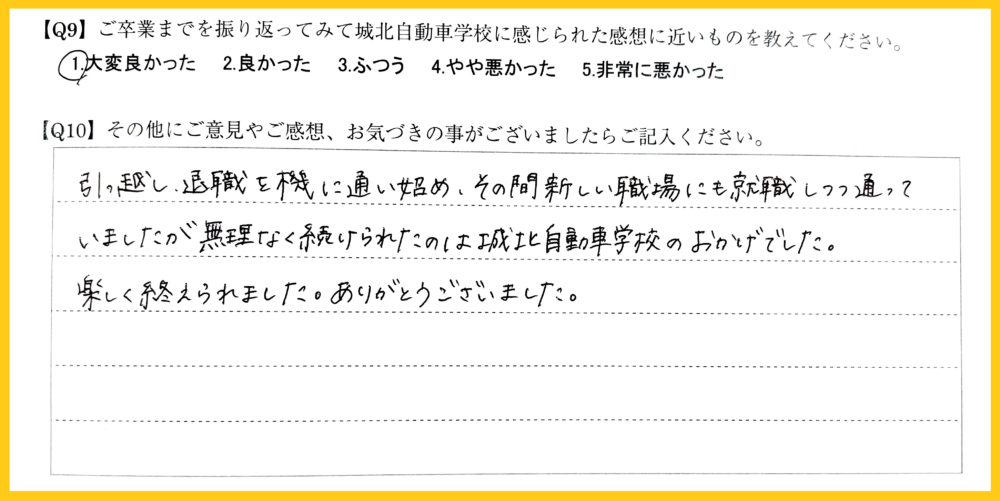 【Q9】ご卒業までを振り返ってみて城北自動車学校に感じられた感想に近いものを教えてください。
1.大変良かった 2.良かった 3.ふつう 4.やや悪かった 5.非常に悪かった
【Q10】その他にご意見やご感想、お気づきの事がございましたらご記入ください。
引っ越し、退職を機に通い始め、その間新しい職場にも就職しつつ通って
いましたが無理なく続けられたのは城北自動車学校のおかげでした。
楽しく終えられました。ありがとうございました。